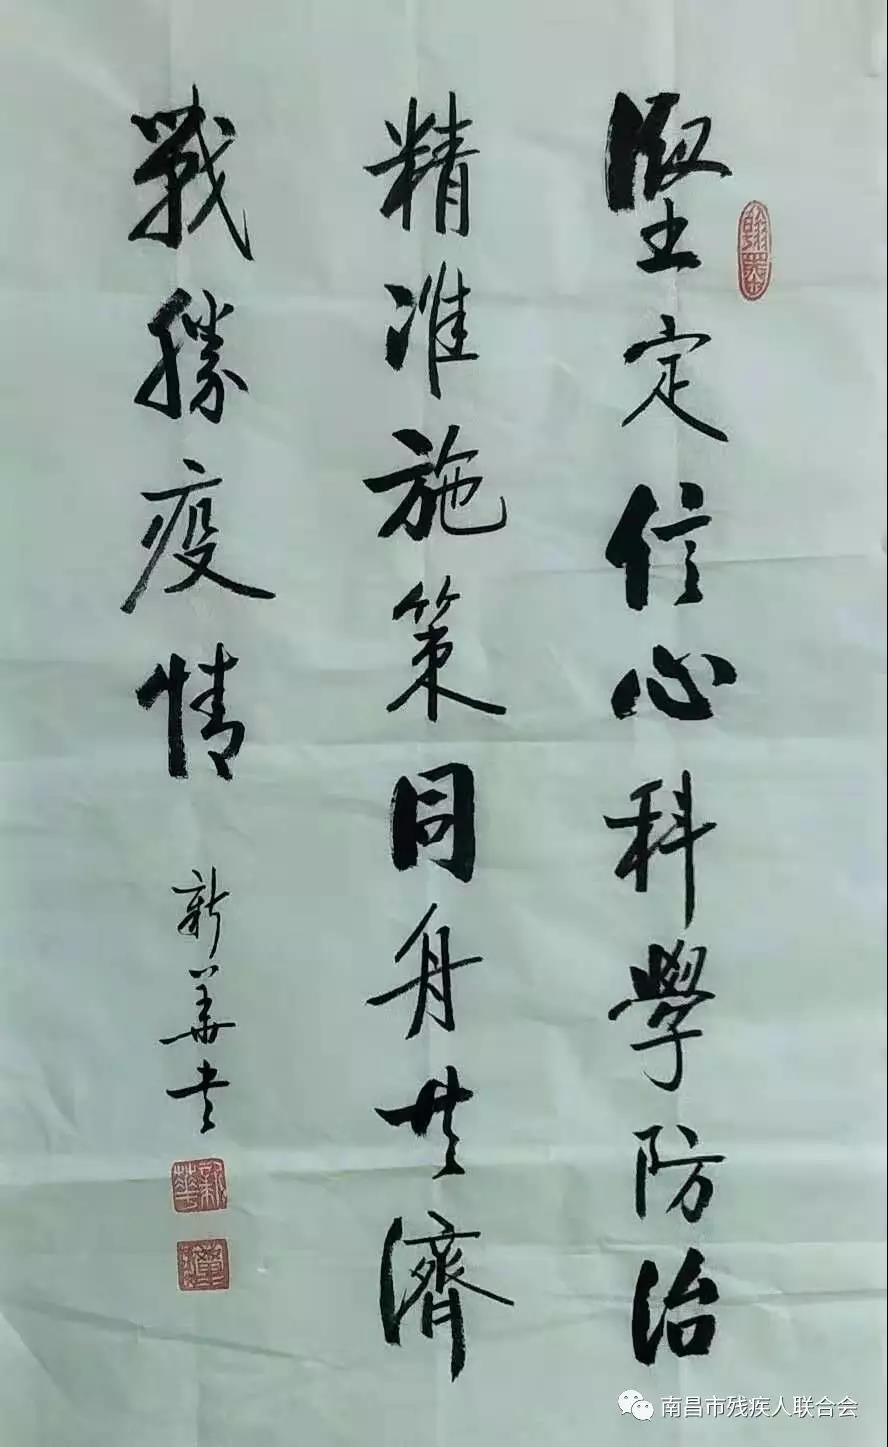 堅定信心科學防治
精准施策同舟共濟
戰勝疫情
新華书
翰墨
新華
南昌市残疾人联合会